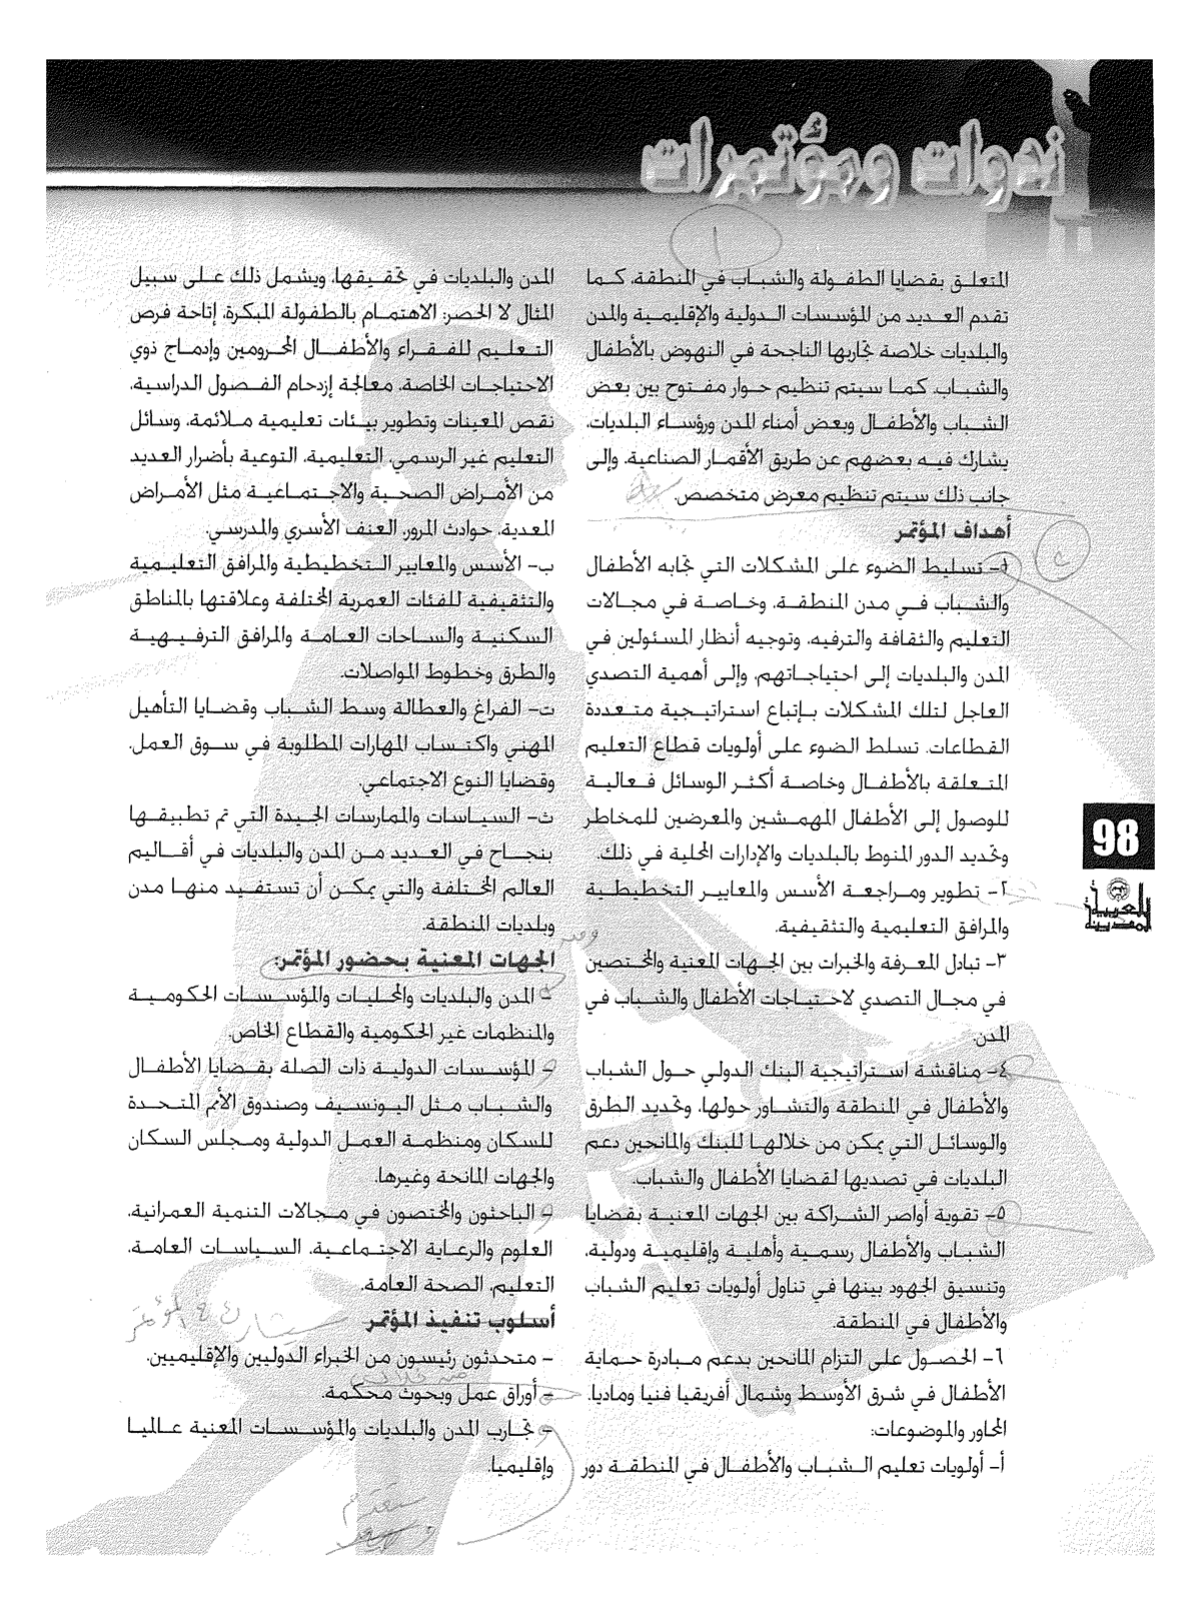 ندوات ومؤتمرات
١
المتعلق بقضايا الطفولة والشباب في المنطقة، كما
تقدم العديد من المؤسسات الدولية والإقليمية والمدن
والبلديات خلاصة تجاربها الناجحة في النهوض بالأطفال
والشباب. كما سيتم تنظيم حوار مفتوح بين بعض
الشباب والأطفال وبعض أمناء المدن ورؤساء البلديات،
يشارك فيه بعضهم عن طريق الأقمار الصناعية. وإلى
جانب ذلك سيتم تنظيم معرض متخصص.
أهداف المؤتمر
١- تسليط الضوء على المشكلات التي تجابه الأطفال
والشباب في مدن المنطقة، وخاصة في مجالات
التعليم والثقافة والترفيه، وتوجيه أنظار المسئولين في
المدن والبلديات إلى احتياجاتهم، وإلى أهمية التصدي
العاجل لتلك المشكلات بإتباع استراتيجية متعددة
القطاعات. تسلط الضوء على أولويات قطاع التعليم
المتعلقة بالأطفال وخاصة أكثر الوسائل فعالية
للوصول إلى الأطفال المهمشين والمعرضين للمخاطر
وتحديد الدور المنوط بالبلديات والإدارات المحلية في ذلك.
٢- تطوير ومراجعة الأسس والمعايير التخطيطية
والمرافق التعليمية والتثقيفية.
٣- تبادل المعرفة والخبرات بين الجهات المعنية والمختصين
في مجال التصدي لاحتياجات الأطفال والشباب في
المدن.
٤- مناقشة استراتيجية البنك الدولي حول الشباب
والأطفال في المنطقة والتشاور حولها، وتحديد الطرق
والوسائل التي يمكن من خلالها للبنك والمانحين دعم
البلديات في تصديها لقضايا الأطفال والشباب.
٥- تقوية أواصر الشراكة بين الجهات المعنية بقضايا
الشباب والأطفال رسمية وأهلية وإقليمية ودولية،
وتنسيق الجهود بينها في تناول أولويات تعليم الشباب
والأطفال في المنطقة.
٦- الحصول على التزام المانحين بدعم مبادرة حماية
الأطفال في شرق الأوسط وشمال أفريقيا فنيا وماديا.
المحاور والموضوعات:
أ- أولويات تعليم الشباب والأطفال في المنطقة دور
المدن والبلديات في تحقيقها، ويشمل ذلك على سبيل
المثال لا الحصر: الاهتمام بالطفولة المبكرة، إتاحة فرص
التعليم للفقراء والأطفال المحرومين وإدماج ذوي
الاحتياجات الخاصة، معالجة إزدحام الفصول الدراسية،
نقص المعينات وتطوير بيئات تعليمية ملائمة، وسائل
التعليم غير الرسمي، التعليمية، التوعية بأضرار العديد
من الأمراض الصحية والاجتماعية مثل الأمراض
المعدية، حوادث المرور، العنف الأسري والمدرسي.
ب- الأسس والمعايير التخطيطية والمرافق التعليمية
والتثقيفية للفئات العمرية المختلفة وعلاقتها بالمناطق
السكنية والساحات العامة والمرافق الترفيهية
والطرق وخطوط المواصلات.
ت- الفراغ والعطالة وسط الشباب وقضايا التأهيل
المهني واكتساب المهارات المطلوبة في سوق العمل،
وقضايا النوع الاجتماعي.
ث- السياسات والممارسات الجيدة التي تم تطبيقها
بنجاح في العديد من المدن والبلديات في أقاليم
العالم المختلفة والتي يمكن أن تستفيد منها مدن
وبلديات المنطقة.
الجهات المعنية بحضور المؤتمر:
- المدن والبلديات والمحليات والمؤسسات الحكومية
والمنظمات غير الحكومية والقطاع الخاص.
- المؤسسات الدولية ذات الصلة بقضايا الأطفال
والشباب مثل اليونسيف وصندوق الأمم المتحدة
للسكان ومنظمة العمل الدولية ومجلس السكان
والجهات المانحة وغيرها.
- الباحثون والمختصون في مجالات التنمية العمرانية،
العلوم والرعاية الاجتماعية، السياسات العامة،
التعليم، الصحة العامة.
أسلوب تنفيذ المؤتمر
- متحدثون رئيسون من الخبراء الدوليين والإقليميين.
- أوراق عمل وبحوث محكمة.
- تجارب المدن والبلديات والمؤسسات المعنية عالميا
وإقليميا.
98
المدينة العربية